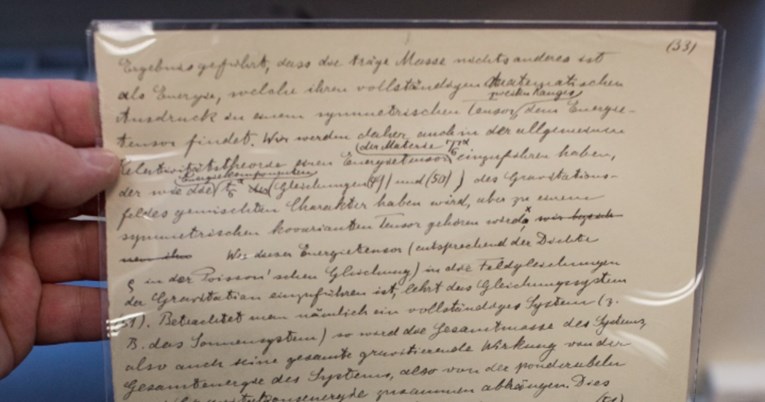 (33)
Ergebnis geführt, dass die träge Masse nichts anderes ist
als Energie, welche ihren vollständigen mathematischen
zweiten Ranges
Ausdruck in einem symmetrischen Tensor, dem Energie-
tensor findet. Wir werden daher auch in der allgemeinen
der Materie T_σ^α
Relativitätstheorie einen Energietensor einzuführen haben,
Energiekomponenten
der wie die t_σ^α der Gleichungen (49) und (50) des Gravitations-
feldes gemischten Charakter haben wird, aber zu einem
symmetrischen kovarianten Tensor gehören wird
Wie dieser Energietensor (entsprechend der Dichte
ρ in der Poisson'schen Gleichung) in die Feldgleichungen
der Gravitation einzuführen ist, lehrt das Gleichungssystem
51). Betrachtet man nämlich ein vollständiges System (z.
B. das Sonnensystem) so wird die Gesamtmasse des Systems,
also auch seine gesamte gravitierende Wirkung von der
Gesamtenergie des Systems, also von der ponderabeln
Gravitationsenergie zusammen abhängen. Dies